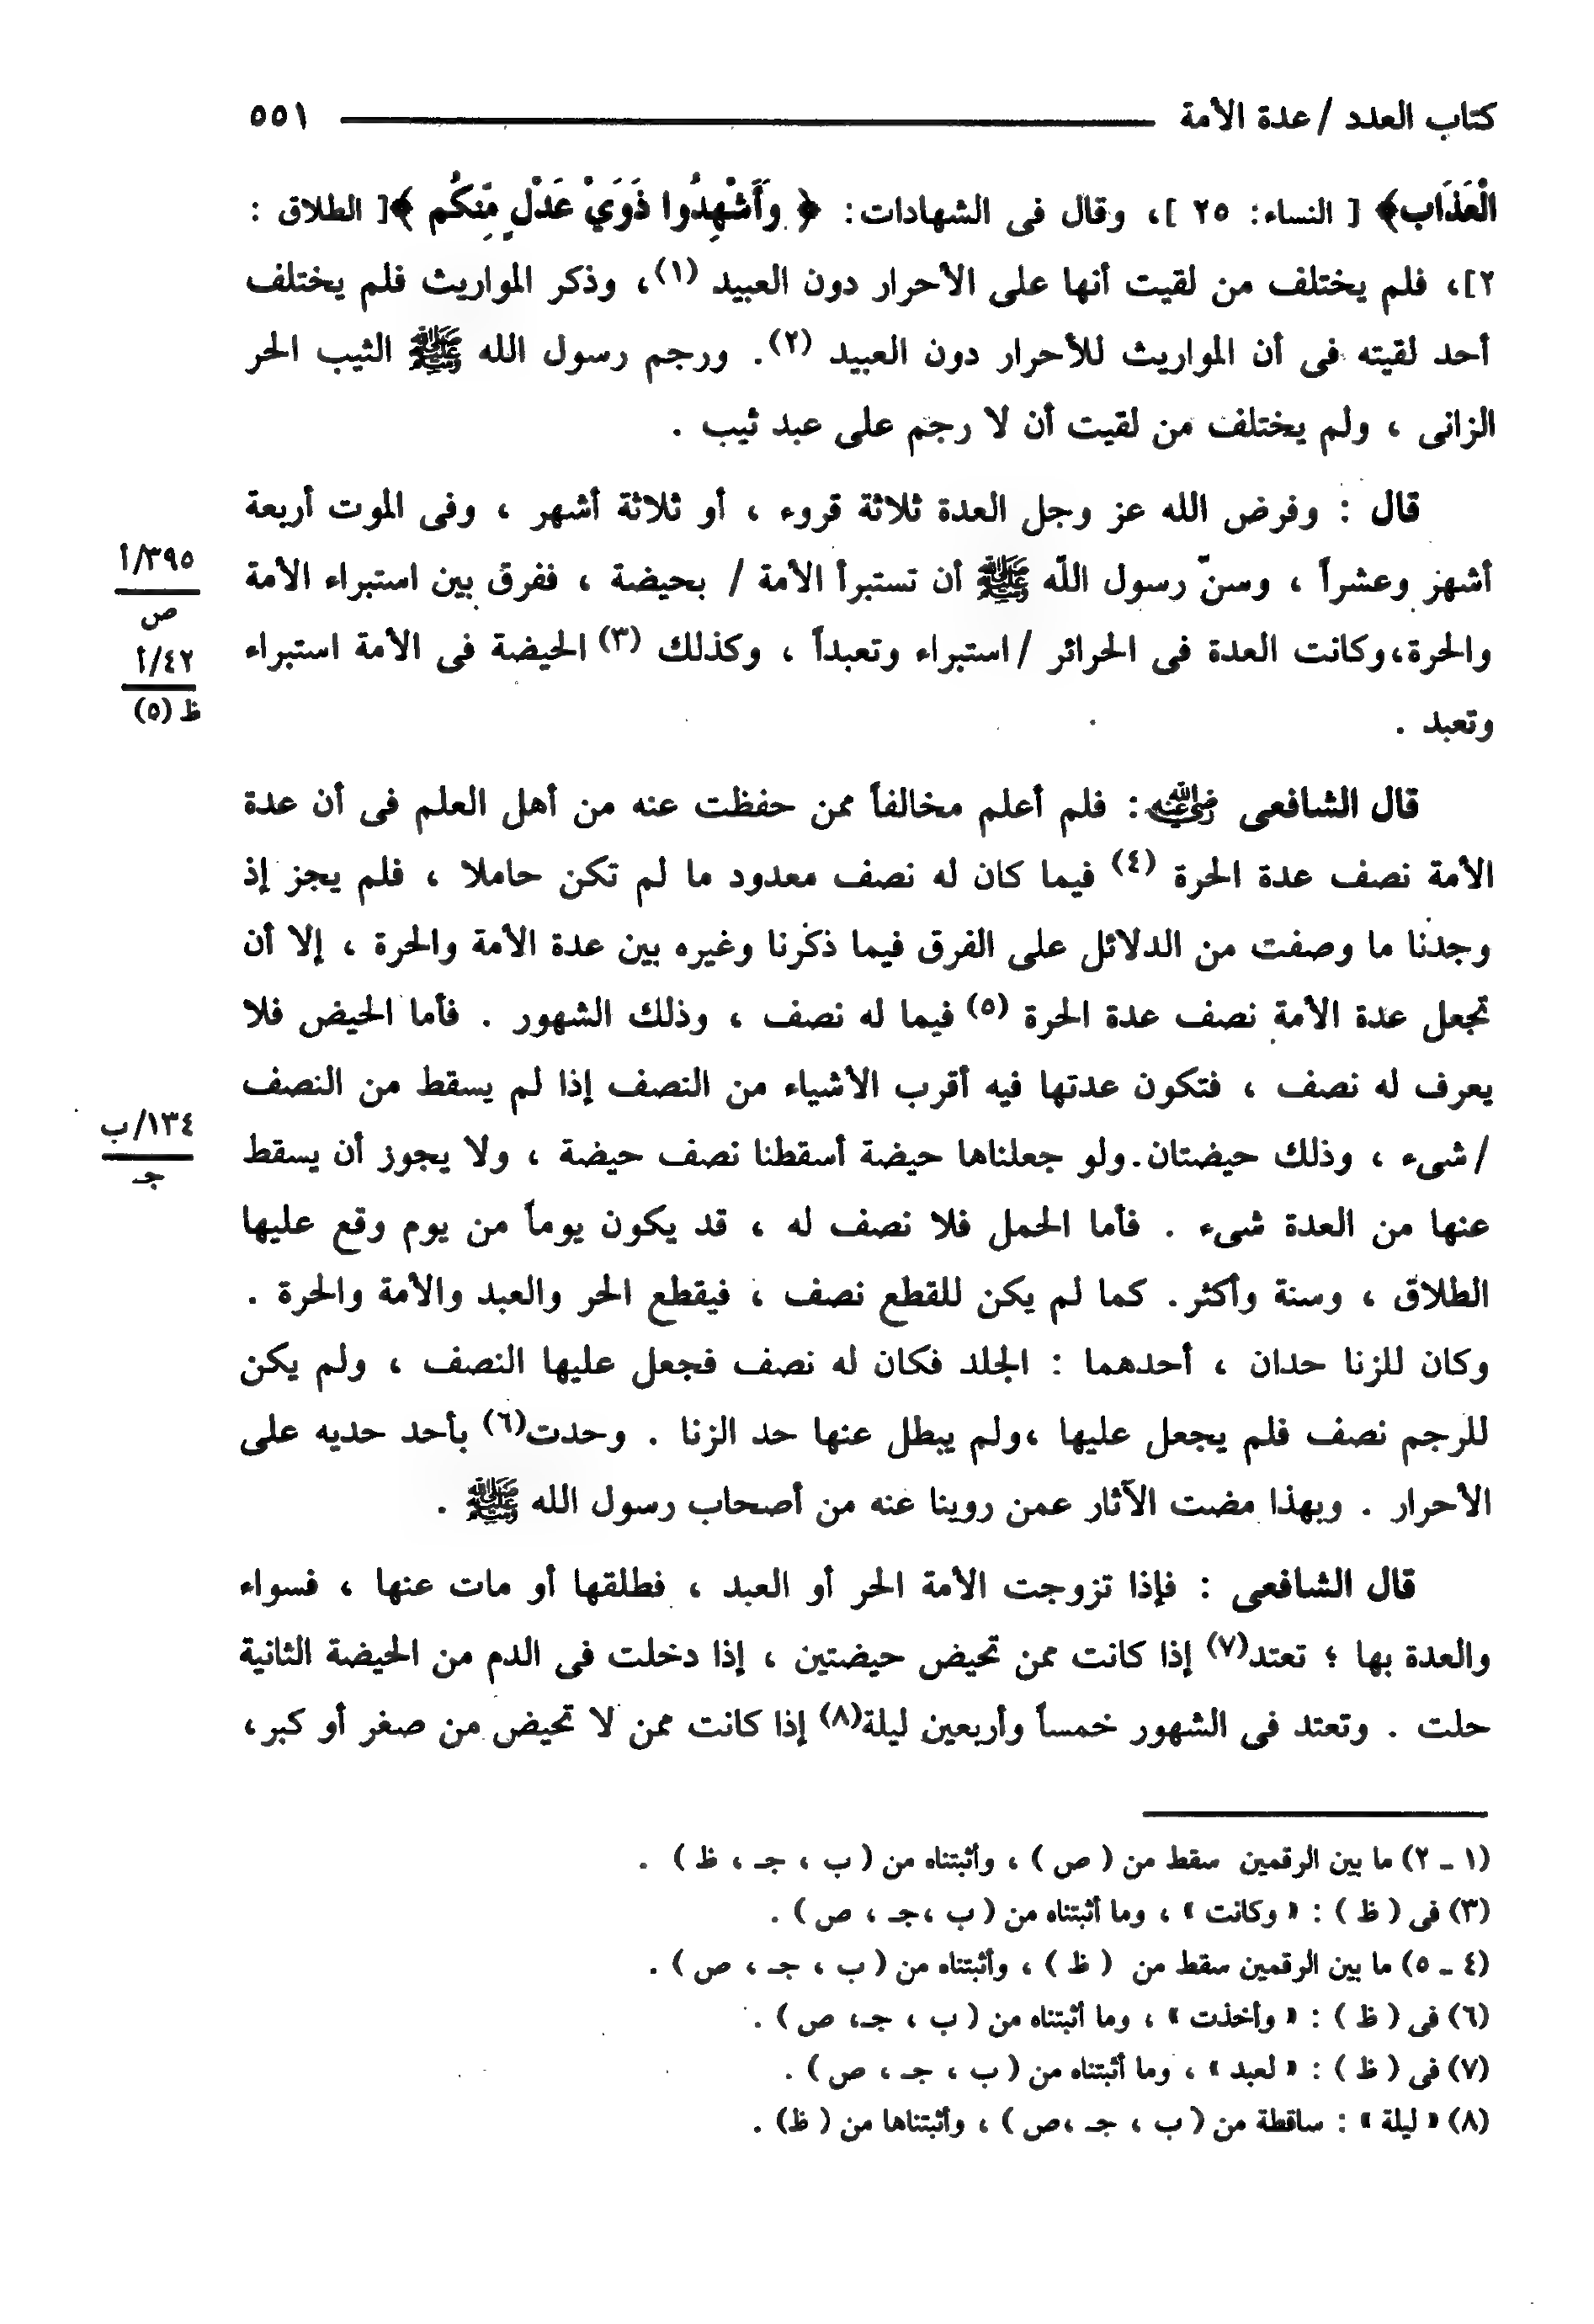 كتاب العدد / عدة الأمة ٥٥١
الْعَذَابِ﴾ [ النساء: ٢٥ ]، وقال فى الشهادات: ﴿ وَأَشْهِدُوا ذَوَيْ عَدْلٍ مِّنكُم ﴾[ الطلاق :
٢]، فلم يختلف من لقيت أنها على الأحرار دون العبيد (١)، وذكر المواريث فلم يختلف
أحد لقيته فى أن المواريث للأحرار دون العبيد (٢). ورجم رسول الله ﷺ الثيب الحر
الزانى ، ولم يختلف من لقيت أن لا رجم على عبد ثيب .
قال : وفرض الله عز وجل العدة ثلاثة قروء ، أو ثلاثة أشهر ، وفى الموت أربعة
أشهر وعشراً ، وسنّ رسول اللّه ﷺ أن تستبرأ الأمة / بحيضة ، ففرق بين استبراء الأمة
والحرة،وكانت العدة فى الحرائر /استبراء وتعبداً ، وكذلك (٣) الحيضة فى الأمة استبراء
وتعبد .
٣٩٥/أ
ص
٤٢/أ
ظ (٥)
قال الشافعى رضي الله عنه : فلم أعلم مخالفاً ممن حفظت عنه من أهل العلم فى أن عدة
الأمة نصف عدة الحرة (٤) فيما كان له نصف معدود ما لم تكن حاملا ، فلم يجز إذ
وجدنا ما وصفت من الدلائل على الفرق فيما ذكرنا وغيره بين عدة الأمة والحرة ، إلا أن
تجعل عدة الأمة نصف عدة الحرة (٥) فيما له نصف ، وذلك الشهور . فأما الحيض فلا
يعرف له نصف ، فتكون عدتها فيه أقرب الأشياء من النصف إذا لم يسقط من النصف
/شىء ، وذلك حيضتان.ولو جعلناها حيضة أسقطنا نصف حيضة ، ولا يجوز أن يسقط
١٣٤/ب
جـ
عنها من العدة شىء . فأما الحمل فلا نصف له ، قد يكون يوماً من يوم وقع عليها
الطلاق ، وسنة وأكثر. كما لم يكن للقطع نصف ، فيقطع الحر والعبد والأمة والحرة .
وكان للزنا حدان ، أحدهما : الجلد فكان له نصف فجعل عليها النصف ، ولم يكن
للرجم نصف فلم يجعل عليها ،ولم يبطل عنها حد الزنا . وحدت(٦) بأحد حديه على
الأحرار . وبهذا مضت الآثار عمن روينا عنه من أصحاب رسول الله ﷺ .
قال الشافعى : فإذا تزوجت الأمة الحر أو العبد ، فطلقها أو مات عنها ، فسواء
والعدة بها ؛ تعتد(٧) إذا كانت ممن تحيض حيضتين ، إذا دخلت فى الدم من الحيضة الثانية
حلت . وتعتد فى الشهور خمساً وأربعين ليلة(٨) إذا كانت ممن لا تحيض من صغر أو كبر،
(١ ـ ٢) ما بين الرقمين سقط من ( ص ) ، وأثبتناه من ( ب ، جـ ، ظ ) .
(٣) فى ( ظ ) : « وكانت » ، وما أثبتناه من ( ب ،جـ ، ص ) .
(٤ ـ ٥) ما بين الرقمين سقط من ( ظ ) ، وأثبتناه من ( ب ، جـ ، ص ) .
(٦) فى ( ظ ) : « وأخذت » ، وما أثبتناه من ( ب ، جـ، ص ) .
(٧) فى ( ظ ) : « لعبد » ، وما أثبتناه من ( ب ، جـ ، ص ) .
(٨) « ليلة » : ساقطة من ( ب ، جـ ،ص ) ، وأثبتناها من ( ظ) .